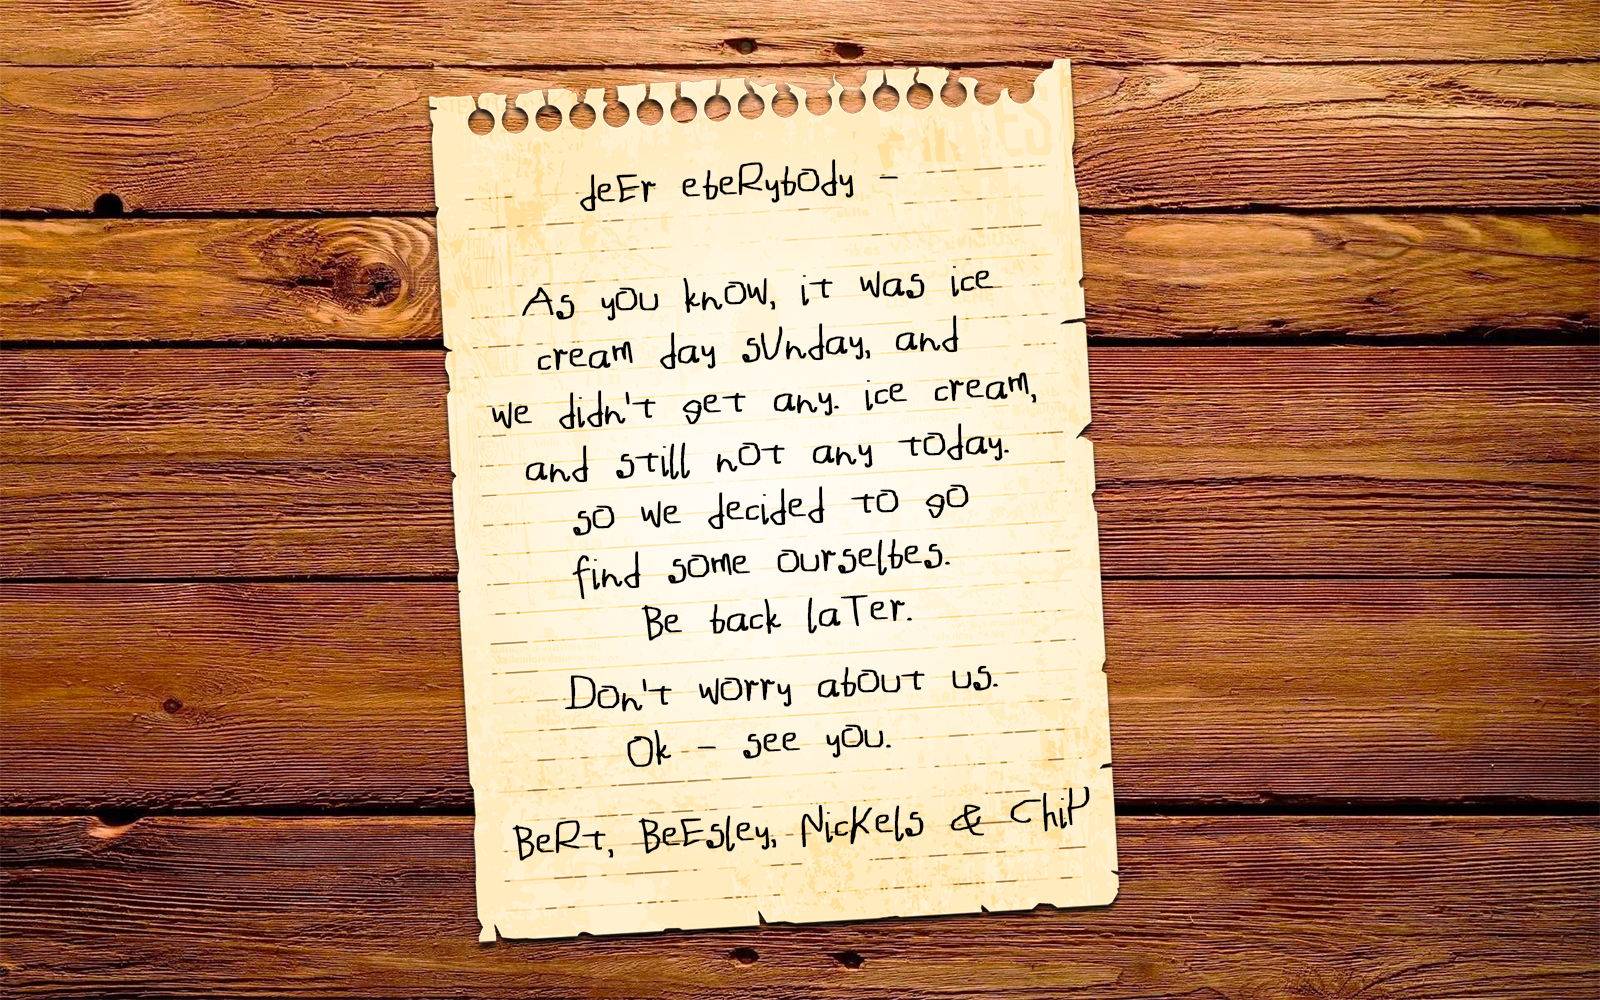 deEr ebeRybOdy -
As yOU knOw, it was ice
cream day sUnday, and
we didn't get any. ice cream,
and still nOt any tOday.
sO we decided tO gO
find sOme Ourselbes.
Be back laTer.
DOn't wOrry abOut us.
Ok - see yOU.
BeRt, BeEsley, NicKels & ChiP